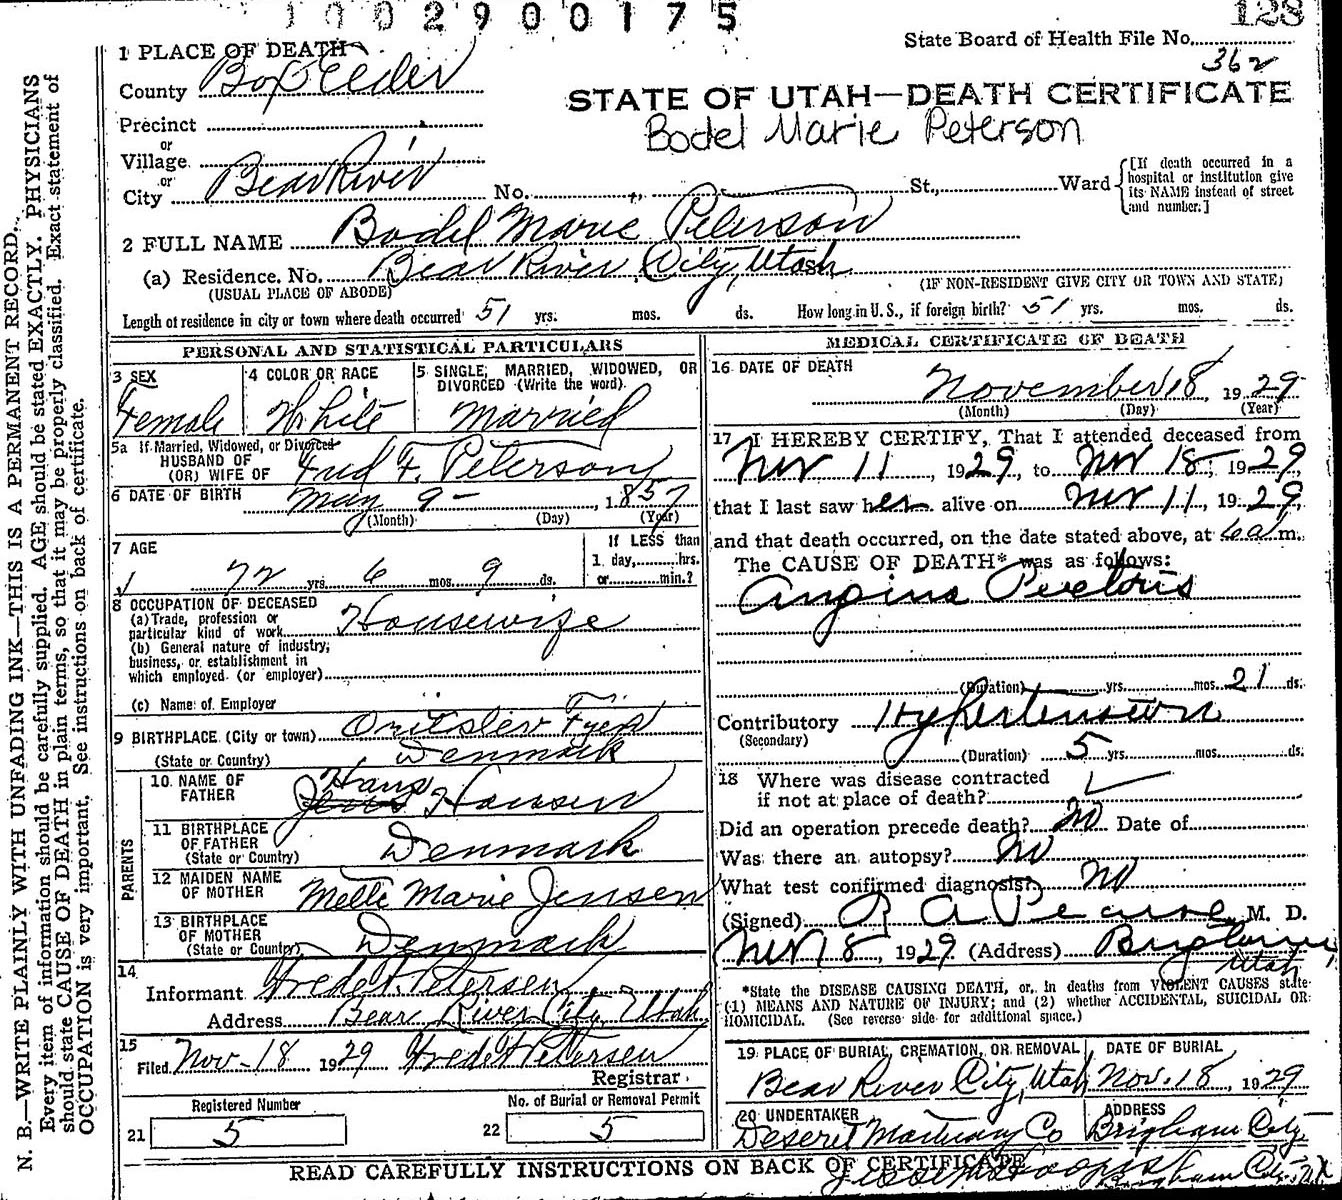 1002900175
128
State Board of Health File No.
362
1 PLACE OF DEATH
County Box Elder
STATE OF UTAH—DEATH CERTIFICATE
Bodel Marie Peterson
Precinct
or
Village
or
City Bear River No. St., Ward
[If death occurred in a hospital or institution give its NAME instead of street and number.]
2 FULL NAME Bodel Marie Peterson
(a) Residence. No. Bear River City, Utah
(USUAL PLACE OF ABODE)
(IF NON-RESIDENT GIVE CITY OR TOWN AND STATE)
Length of residence in city or town where death occurred 51 yrs. mos. ds. How long in U. S., if foreign birth? 51 yrs. mos. ds.
PERSONAL AND STATISTICAL PARTICULARS
3 SEX
Female
4 COLOR OR RACE
White
5 SINGLE, MARRIED, WIDOWED, OR DIVORCED (Write the word)
Married
5a If Married, Widowed, or Divorced
HUSBAND OF
(OR) WIFE OF Fred F. Peterson
6 DATE OF BIRTH May 9 - , 1857
(Month) (Day) (Year)
7 AGE
72 yrs. 6 mos. 9 ds.
If LESS than
1 day, hrs.
or min.?
8 OCCUPATION OF DECEASED
(a) Trade, profession or
particular kind of work Housewife
(b) General nature of industry,
business, or establishment in
which employed (or employer)
(c) Name of Employer
9 BIRTHPLACE (City or town)
(State or Country) Denmark
PARENTS
10 NAME OF FATHER
Hans Hansen
11 BIRTHPLACE OF FATHER
(State or Country) Denmark
12 MAIDEN NAME OF MOTHER Mette Marie Jensen
13 BIRTHPLACE OF MOTHER
(State or Country) Denmark
14
Informant Fred F. Petersen
Address Bear River City, Utah
15
Filed Nov - 18 1929 Fred F Petersen
Registrar
Registered Number
21 5
No. of Burial or Removal Permit
22 5
MEDICAL CERTIFICATE OF DEATH
16 DATE OF DEATH
November 18, 1929
(Month) (Day) (Year)
17 I HEREBY CERTIFY, That I attended deceased from
Nov 11, 1929, to Nov 18, 1929
that I last saw her alive on Nov 11, 1929,
and that death occurred, on the date stated above, at 6 a m.
The CAUSE OF DEATH* was as follows:
Angina Pectoris
(Duration) yrs. mos. 21 ds.
Contributory Hypertension
(Secondary)
(Duration) 5 yrs. mos. ds.
18 Where was disease contracted
if not at place of death?
Did an operation precede death? No Date of
Was there an autopsy? No
What test confirmed diagnosis? No
(Signed) R A Pearse, M. D.
Nov 18, 1929 (Address) Brigham,
Utah
*State the DISEASE CAUSING DEATH, or, in deaths from VIOLENT CAUSES state
(1) MEANS AND NATURE OF INJURY; and (2) whether ACCIDENTAL, SUICIDAL OR
HOMICIDAL. (See reverse side for additional space.)
19 PLACE OF BURIAL, CREMATION, OR REMOVAL
Bear River City, Utah
DATE OF BURIAL
Nov. 18, 1929
20 UNDERTAKER
Deseret Mortuary Co
ADDRESS
Brigham City
READ CAREFULLY INSTRUCTIONS ON BACK OF CERTIFICATE
Brigham City
N. B.—WRITE PLAINLY WITH UNFADING INK—THIS IS A PERMANENT RECORD.
Every item of information should be carefully supplied. AGE should be stated EXACTLY. PHYSICIANS
should state CAUSE OF DEATH in plain terms, so that it may be properly classified. Exact statement of
OCCUPATION is very important. See instructions on back of certificate.